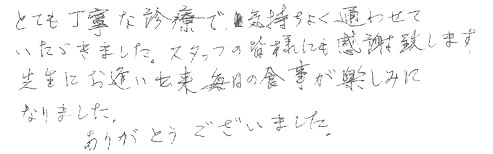 とても丁寧な診療で、気持ちよく通わせて
いただきました。スタッフの皆様にも感謝致します
先生にお逢い出来毎日の食事が楽しみに
なりました。
ありがとうございました。